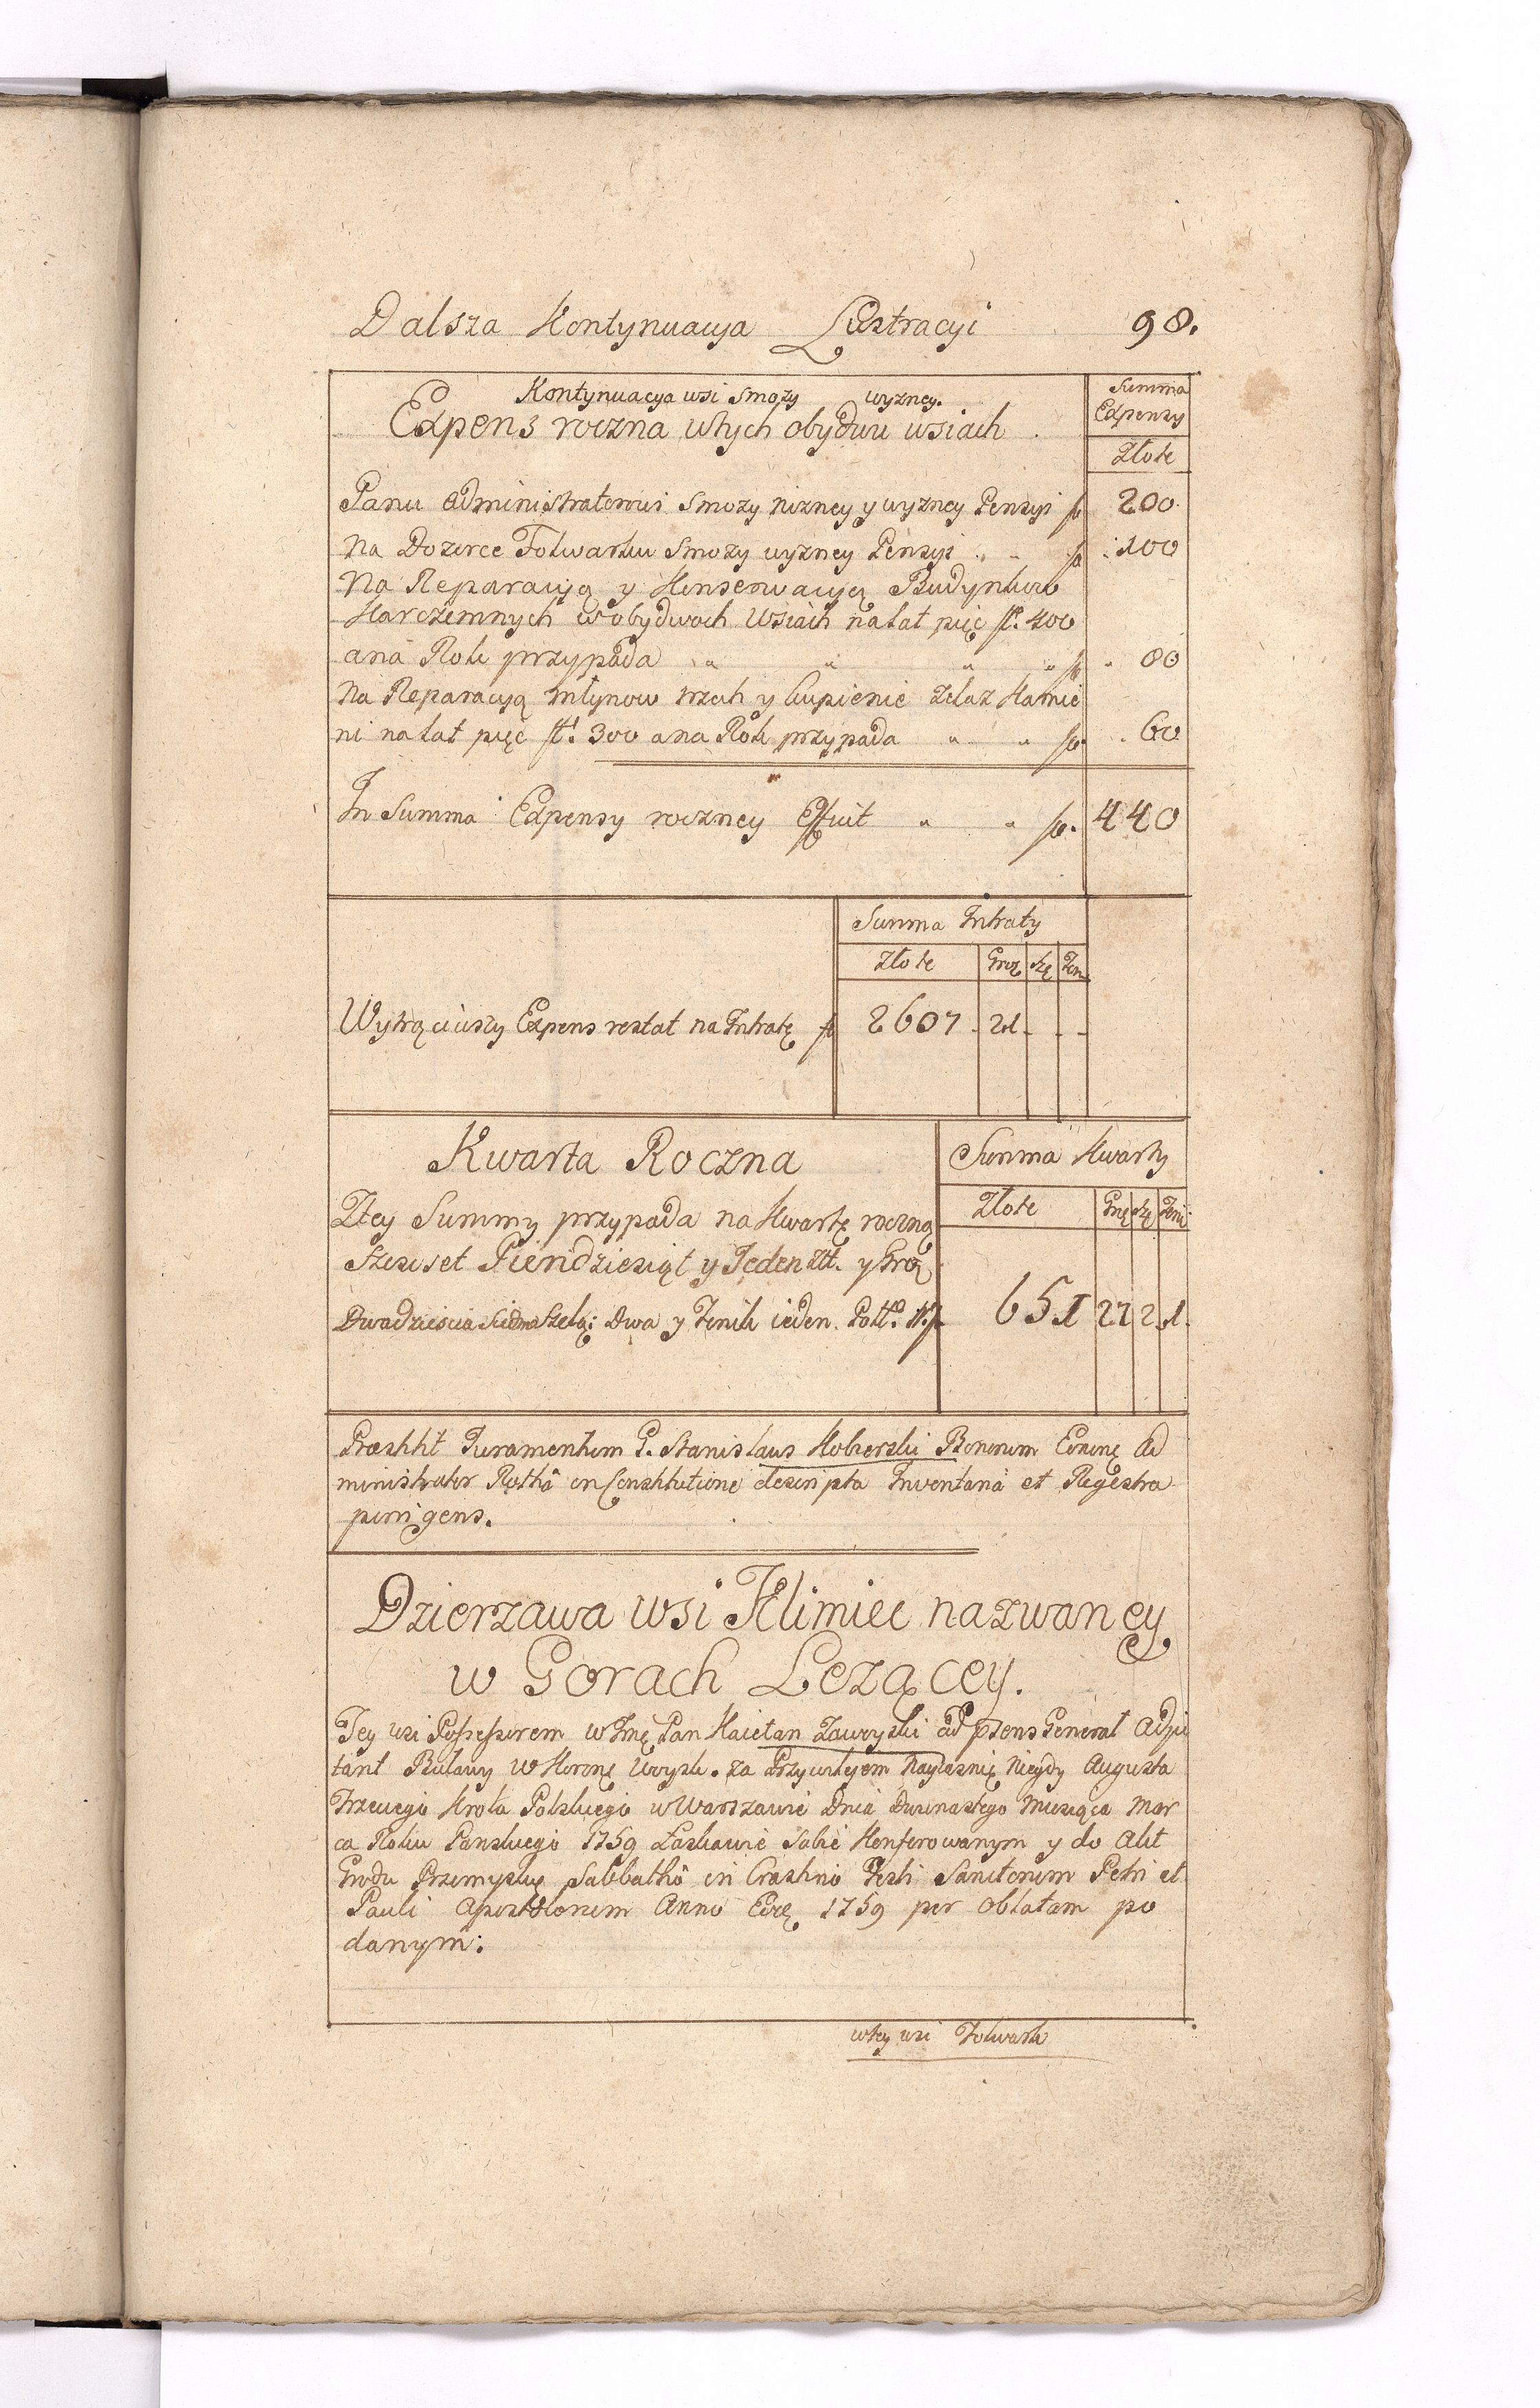 Dalsza Kontynuacya Lustracyi 98.
Kontynuacya wsi Smozy wyzney.
Expens roczna wtych obydwu wsiach
Summa Expensy
Złote
Panu Administratorowi Smozy nizney y wyzney Pensyi fl 200.
Na Dozorce Folwarku Smozy wyzney Pensyi " " fl 100
Na Reparacyą y Konserwacyą Budynkow
Karczemnych w obydwoch Wsiach na lat pięć fl. 400
a na Rok przypada " " " " fl " 80
Na Reparacyą młynow trzech y kupienie Zelaz Kamie
ni na lat pięć fl. 300 a na Rok przypada " " fl. . 60
In Summa Expensy roczney Efficit " " fl. 440
Summa Intraty
Złote Grosz Szę Den
Wytrąciwszy Expens restat na Intratę fl 2607 - 21 - - -
Kwarta Roczna
Summa Kwarty
Złote Gro Szę Deni
Ztey Summy przypada na Kwartę roczną
Szescset Piendziesiąt y Jeden Złł. y Grosz
Dwadziescia Siedm Szelą: Dwa y Denik ieden. Poll. fl. 651 27 2 1.
Præstitit Juramentum G. Stanislaus Kobierski Bonorum Eorume Ad
ministrator Rothâ in Constitutione descripta Inventaria et Regestra
porrigens.
Dzierzawa wsi Klimiec nazwaney
w Gorach Lezącey.
Tey wsi Possessorem W Jmę Pan Kaietan Zawoyski ad præsens General Adju
tant Buławy W Koronę Woysk. za Przywileyem Nayiasnię Niegdy Augusta
Trzeciego Krola Polskiego w Warszawie Dnia Dwunastego Miesiąca Mar
ca Roku Panskiego 1759 Łaskawie Sobie Konferowanym y do Akt
Grodu Przemyskę Sabbathô in Crastino Festi Sanctorum Petri et
Pauli Apostolorum Anno Eoię 1759 per Oblatam po
danym:
wtey wsi Folwark